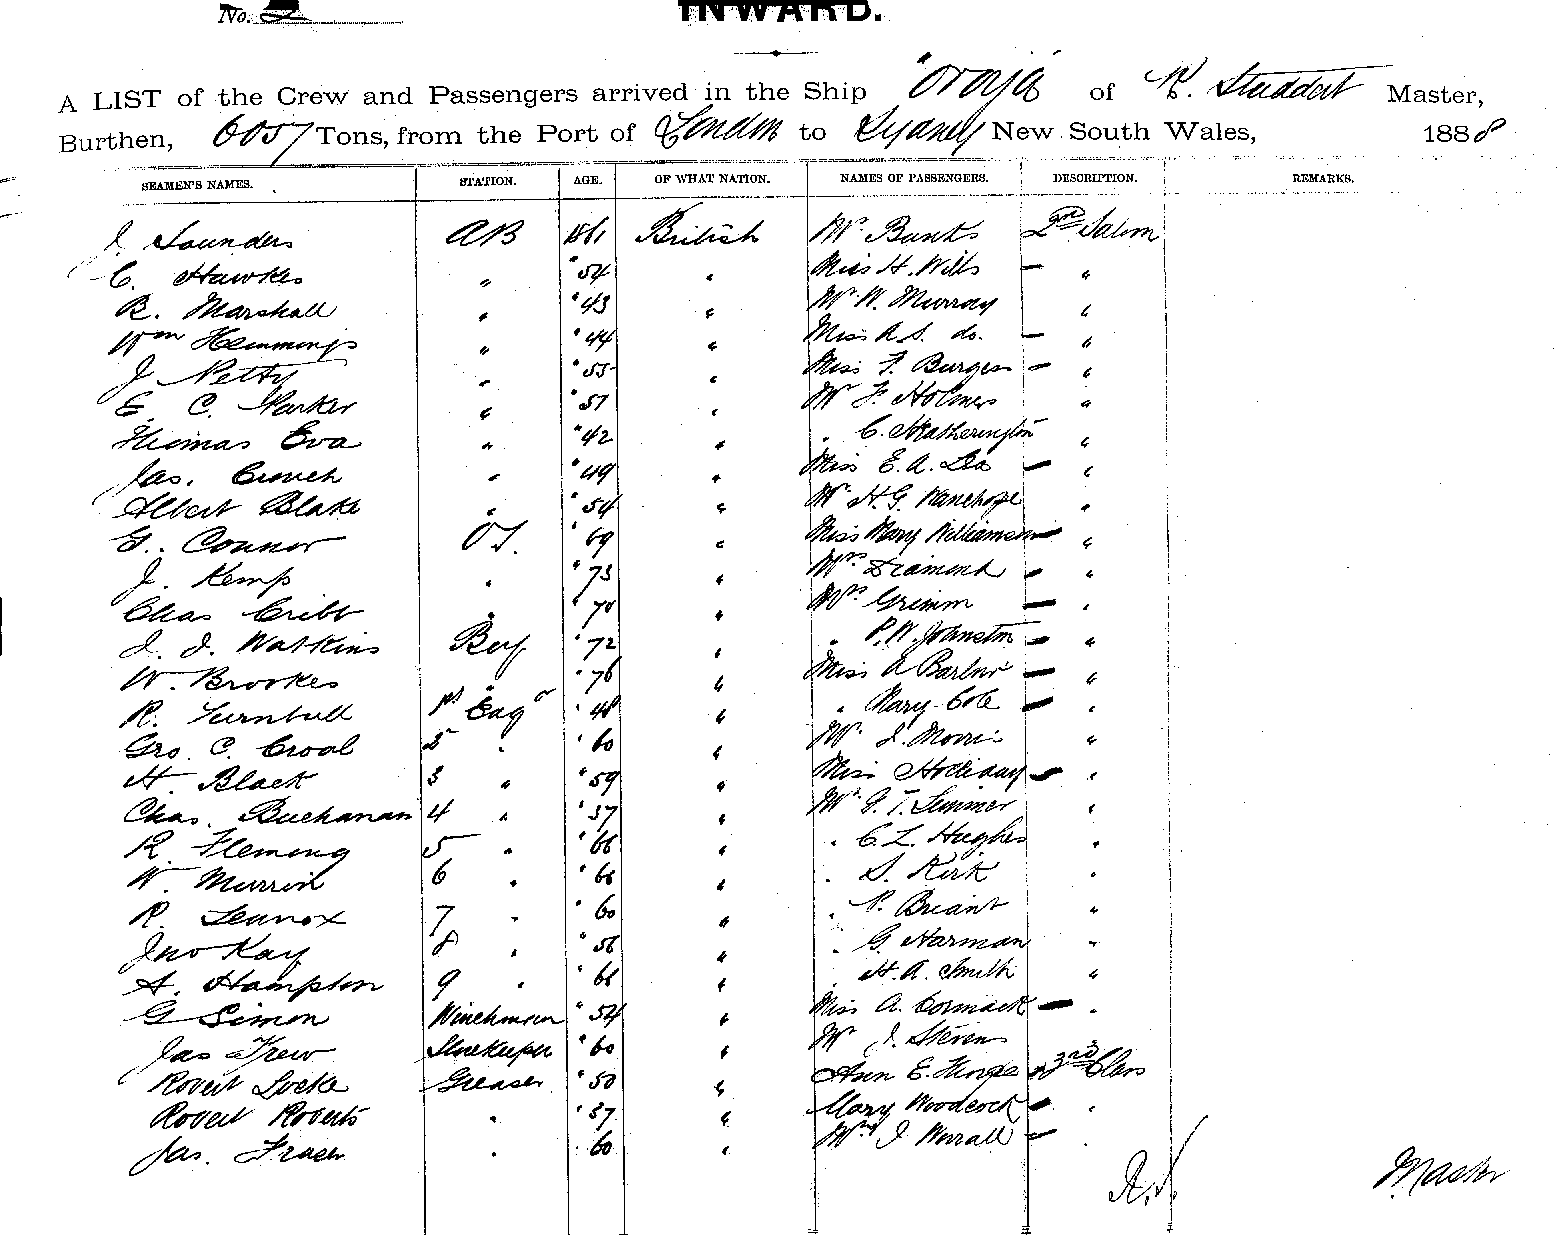 No. 2
INWARD.
A LIST of the Crew and Passengers arrived in the Ship "Oroya" of R. Studdert Master,
Burthen, 6057 Tons, from the Port of London to Sydney New South Wales, 1888
SEAMEN'S NAMES. STATION. AGE. OF WHAT NATION. NAMES OF PASSENGERS. DESCRIPTION. REMARKS.
J. Saunders AB 1861 British Mr Banks 2nd Saloon
C. Hawkes " " 54 " Miss H. Wills — "
R. Marshall " " 43 " Mr W. Murray "
Wm Hemmings " " 44 " Miss A S. do. — "
J Petty " " 55 " Miss F. Burgess — "
E C. Parker " " 57 " Mr F. Holmes "
Thomas Eva " " 42 " " C. Heatherington "
Jas. Crouch " " 49 " Miss E. A. Lea — "
Albert Blake " " 54 " Mr H. G. "
G. Connor OS. " 69 " Miss Mary Williamson — "
J. Kemp " " 73 " Mrs Diamond — "
Chas Cribb " " 70 " Mrs Grimm — "
J. J. Watkins Boy " 72 " " P. W. Johnston — "
W. Brookes " " 76 " Miss A Barlow — "
R. Turnbull 1st Engr " 48 " " Mary Cole — "
Geo. C. Crool 2 " " 60 " Mr J. Morris "
H. Black 3 " " 59 " Miss Holliday — "
Chas. Buchanan 4 " " 57 " Mr G. T. Summer "
R. Fleming 5 " " 66 " " C. L. Hughes "
W. Murrin 6 " " 66 " " S. Kirk "
R. Lennox 7 " " 60 " " P. Briant "
Jno Kay 8 " " 56 " " G. Harman "
A. Hampton 9 " " 66 " " H. A. Smith "
G Simon Winchman " 54 " Miss A. Cormack — "
Jas Trew Storekeeper " 60 " Mr J. Stevens "
Robert Locke Greaser " 50 " Ann E. Thorpe 3rd Class
Robert Roberts " " 57 " Mary Woodcock — "
Jas. Fraser " 60 " Mrs J Worrall — "
R.S. Master